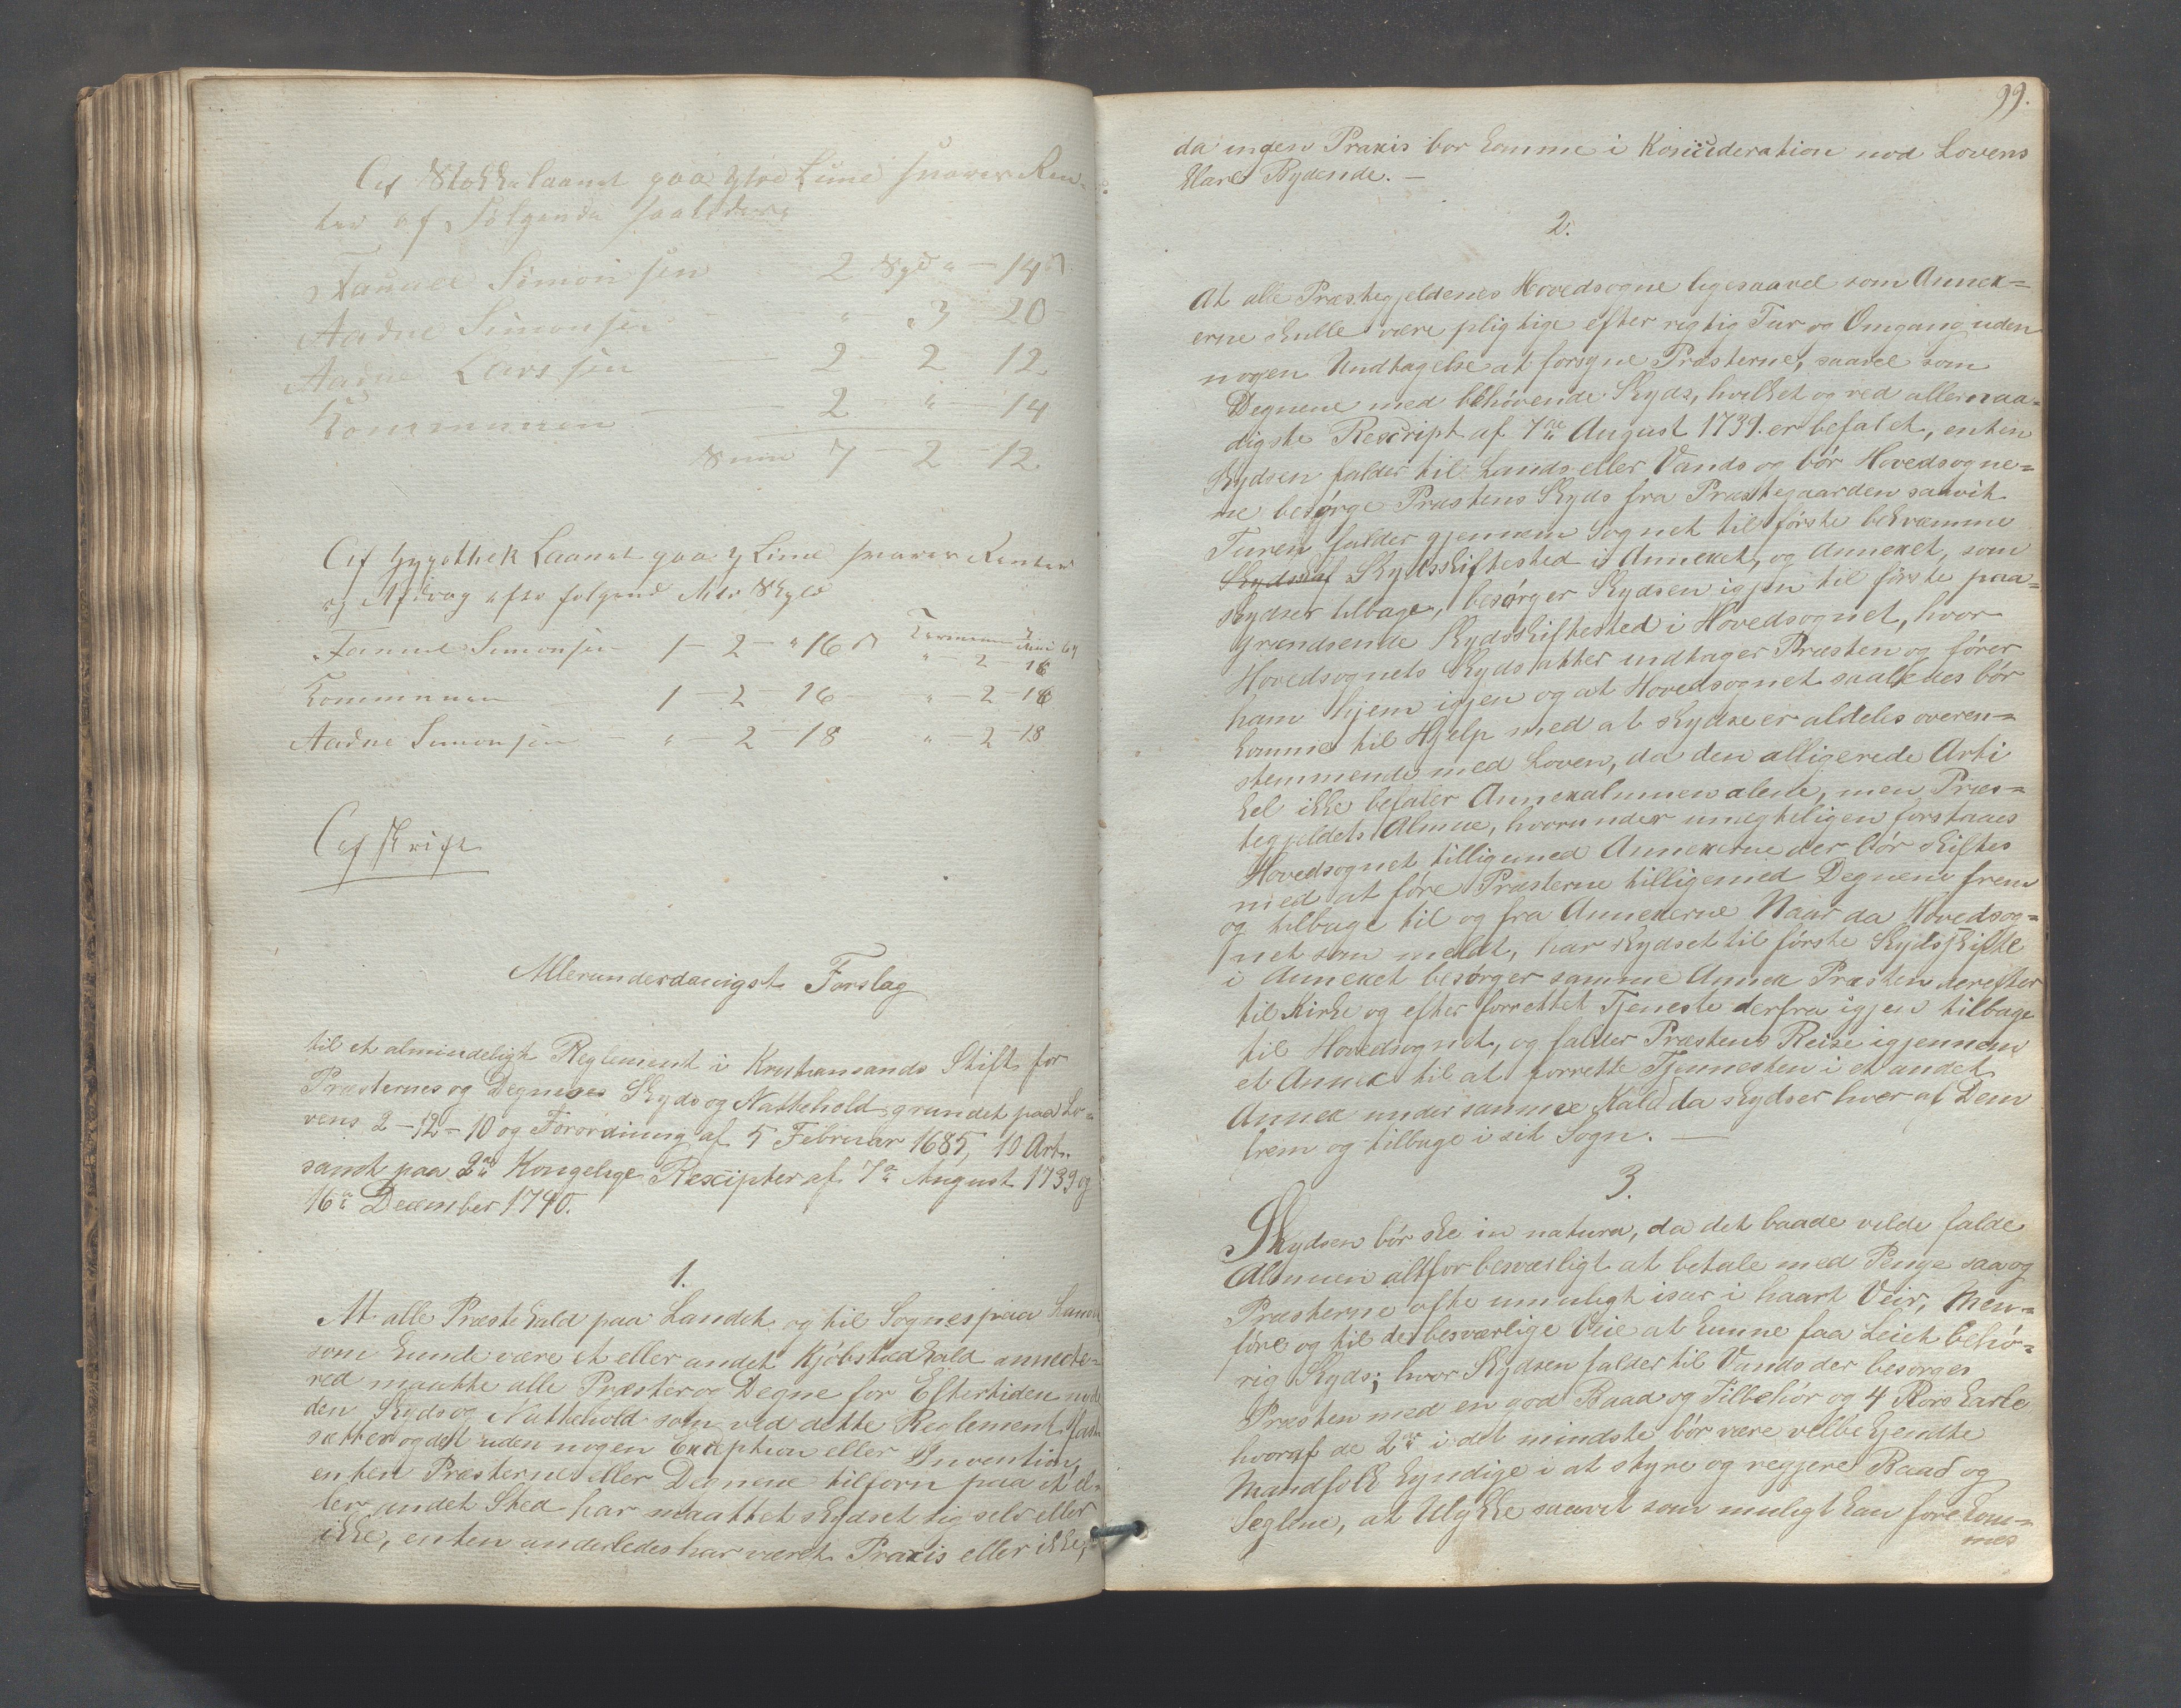 Af Stokkelaanet paa ytre Lime svarer Ren-
ter af Følgende saaledes
Samuel Simonsen 2 Spd " 14 ß
Aadne Simonsen " 3 20
Aadne Larssen 2 2 12
Kommunen 2 " 14
Sum 7 - 2 - 12
Af Hypothek Laanet paa y Lime svarer Renter
og Afdrag efter følgende Skyld
Samuel Simonsen 1 - 2 - " 16 ß " - 2 - 16
Kommunen 1 - 2 - 16 " - 2 - 16
Aadne Simonsen " - 2 - 18 " - 2 - 18
Afskrift
Allerunderdanigst Forslag
til et almindeligt Reglement i Kristiansands Stift for
Præsternes og Degnenes Skyds og Nattehold grundet paa Lo-
vens 2-12-10 og Forordning af 5 Februar 1685, 10 Art.
samt paa 2de Kongelige Rescripter af 7de August 1739 og
16de December 1740.
1.
At alle Præstekald paa Landet og til Sognes paa Landet
som kunde være et eller andet Kjøbstadkald annecte-
red maatte alle Præster og Degne for Eftertiden nyde
den Skyds og Nattehold som ved dette Reglement fast-
sættes og det uden nogen Exception eller Invention,
enten Præsterne eller Degnene tilforn paa et el-
ler andet Sted har maattet skydset sig selv eller
ikke, enten anderledes har været Praxis eller ikke,
99.
da ingen Praxis bør komme i Konsideration mod Lovens
klare Bydende. —
2.
At alle Præstegjeldenes Hovedsogne ligesaavel som Annex=
erne skulle være pligtige efter rigtig Tur og Omgang uden
nogen Undtagelse at forsyne Præsterne, saavel som
Degnene med behøvende Skyds, hvilket og ved allernaa-
digste Rescript af 7de August 1739. er befalet, enten
Skydsen falder til Lands eller Vands og bør Hovedsogne=
ne besørge Præstens Skyds fra Præstegaarden saavit
Turen falder gjennem Sognet til første bekvemme
Skydsskif Skydsskiftested i Annexet, og Annexet, som
skydser tilbage, besørger Skydsen igjen til første paa=
grændsende Skydsskiftested i Hovedsognet, hvor
Hovedsognets Skyds atter indtager Præsten og fører
ham hjem igjen og at Hovedsognet saaledes bør
komme til Hjelp med at skydse er aldeles overen=
stemmende med Loven, da den alligerede Arti
kel ikke befaler Annexalmuen alene, men Præs=
tegjeldets Almue, hvorunder unægteligen forstaaes
Hovedsognet tilligemed Annexerne der bør skiftes
med at føre Præsterne tilligemed Degnene frem
og tilbage til og fra Annexerne Naar da Hovedsog=
net som meldt, har skydset til første Skydsskifte
i Annexet besørger samme Annex Præsten derefter
til Kirke og efter forrettet Tjeneste derfra igjen tilbage
til Hovedsognet, og falder Præstens Reise igjennem
et Annex til at forrette Tjennesten i et andet
Annex under samme Kald da skydser hver af Dem
frem og tilbage i sit Sogn. —
3.
Skydsen bør ske in natura, da det baade vilde falde
Almuen altfor besværligt at betale med Penge saa og
Præsterne ofte umuligt især i haart Veir, Men=
føre og til de besværlige Veie at kunne faa Leiet behø-
rig Skyds; hvor Skydsen falder til Vands der besørges
Præsten med en god Baad og Tilbehør og 4 Rorskarle
hvoraf de 2de i det mindste bør være velbekjendte
Mandfolk kyndige i at styre og regjere Baad og
Seglene, at Ulykke saavit som muligt kan forekom=
mes